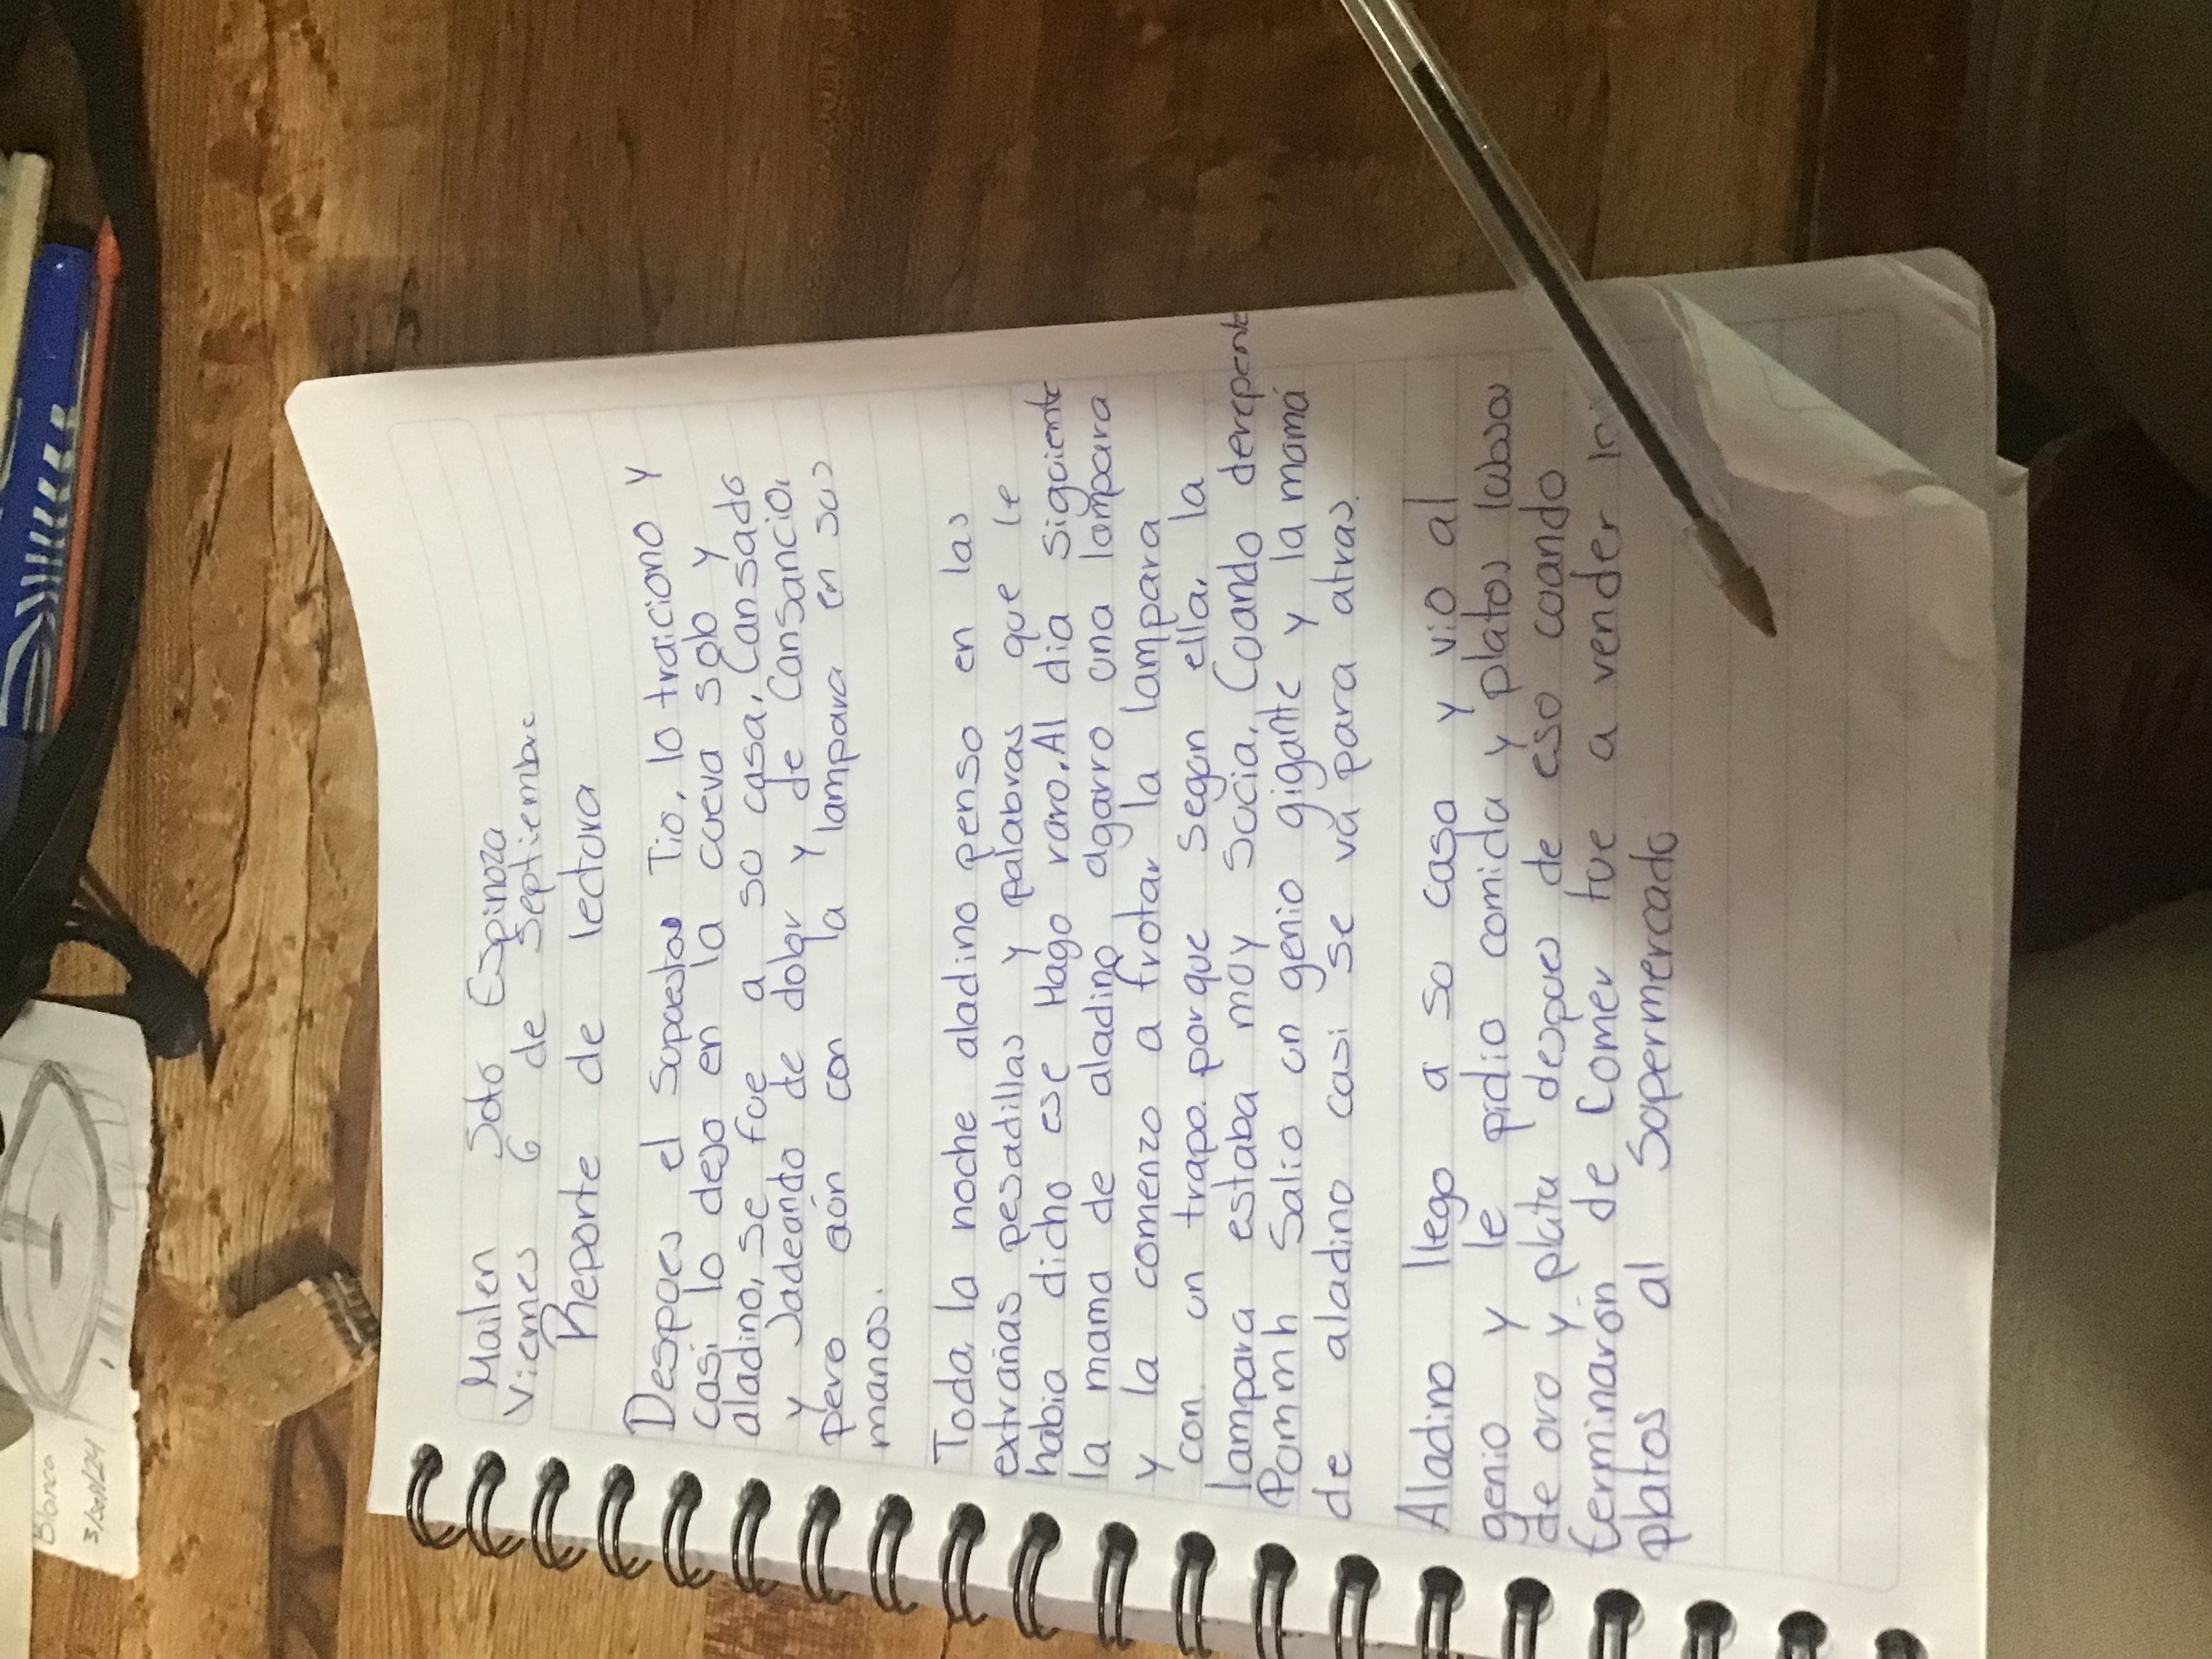 Mailen Soto Espinoza
Viernes 6 de Septiembre
Reporte de lectura
Despues el supuesto Tio, lo traiciono y
casi lo dejo en la cueva solo y
aladino, se fue a su casa, Cansado
y Jadeando de dolor y de Cansancio,
pero aón con la lampara en sus
manos.
Toda la noche aladino penso en las
extrañas pesadillas y palabras que le
habia dicho ese Mago raro. Al dia siguiente
la mama de aladino agarro una lampara
y la comenzo a frotar la lampara
con un trapo porque segun ella, la
lampara estaba muy sucia, Cuando derepente
Pommh Salio un genio gigante y la mamá
de aladino casi se va para atras.
Aladino llego a su casa y vio al
genio y le pidio comida y platos
de oro y plata despues de eso cuando
terminarón de Comer fue a vender
platos al Supermercado
Blanca
3/sep/24